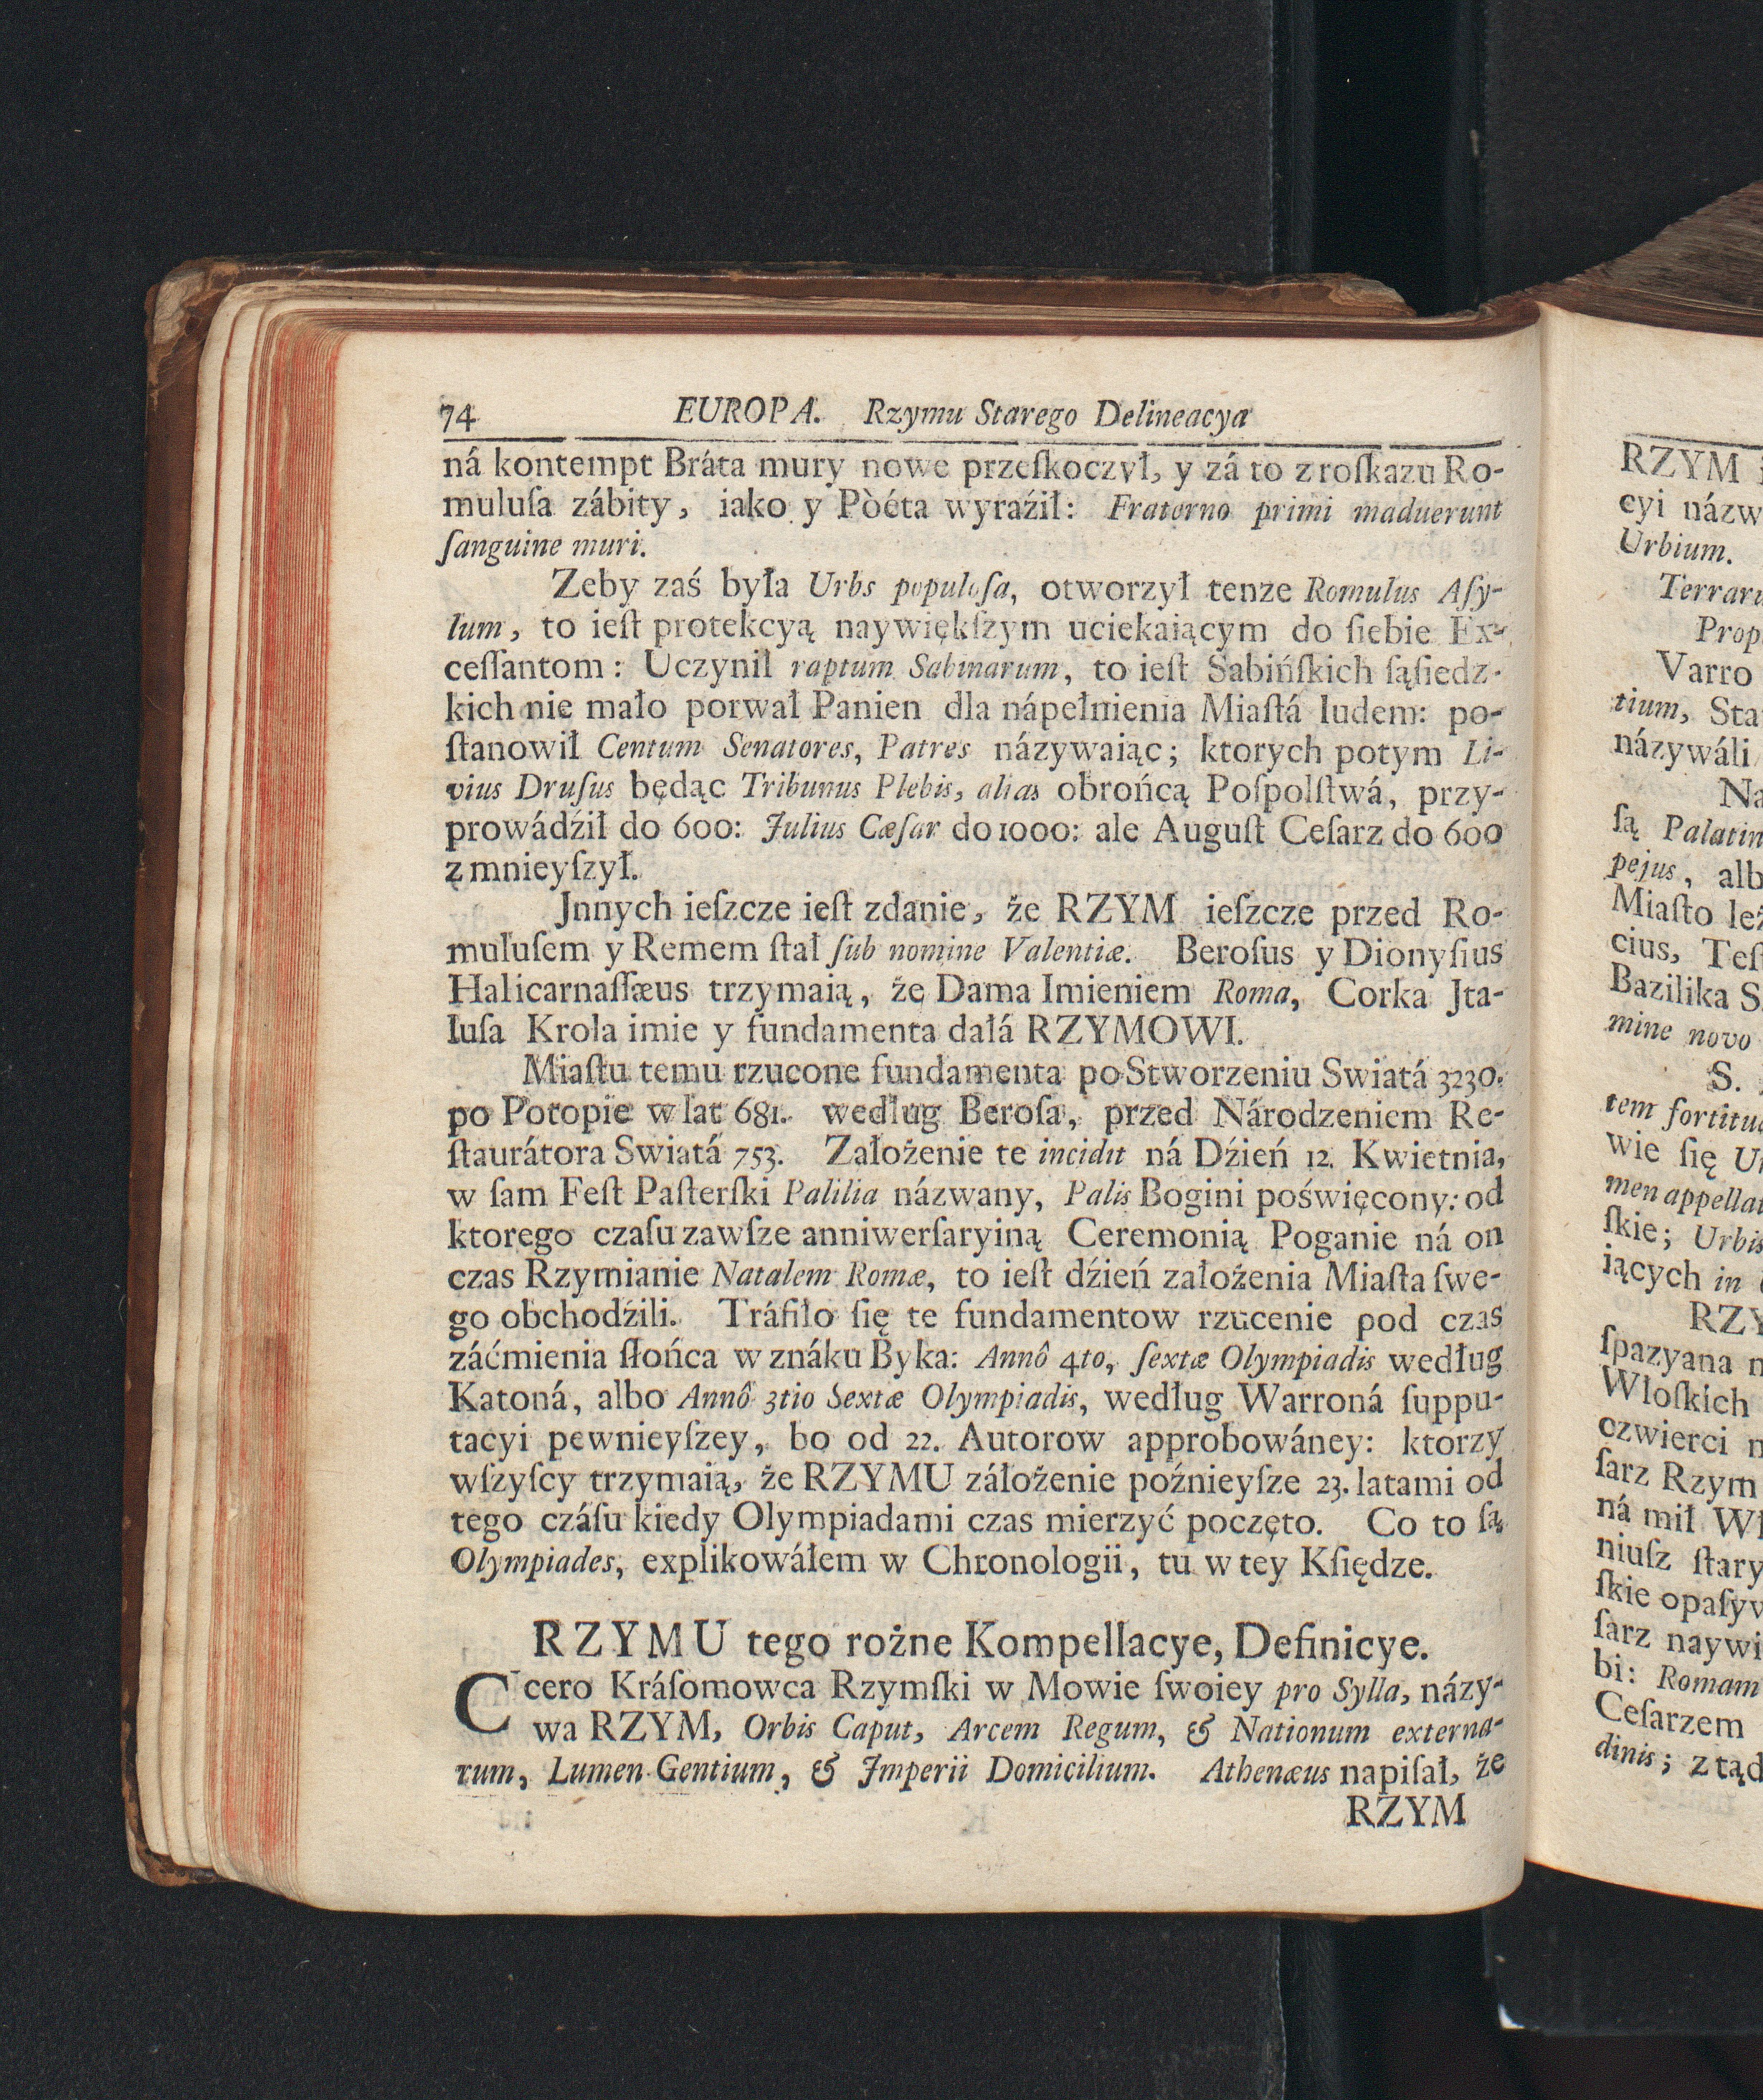 74 EUROPA. Rzymu Starego Delineacya
ná kontempt Bráta mury nowe przeſkoczył, y zá to z roſkazu Ro-
muluſa zábity, iako y Pòéta wyraźił: Fraterno primi maduerunt
ſanguine muri.
Zeby zaś była Urbs populoſa, otworzył tenze Romulus Aſy-
lum, to ieſt protekcyą naywiękſzym uciekaiącym do ſiebie Ex-
ceſſantom: Uczynił raptum Sabinarum, to ieſt Sabińſkich ſąſiedz-
kich nie mało porwał Panien dla nápełnienia Miaſtá ludem: po-
ſtanowił Centum Senatores, Patres názywaiąc; ktorych potym Li-
vius Druſus będąc Tribunus Plebis, alias obrońcą Poſpolſtwá, przy-
prowádźił do 600: Julius Cæſar do 1000: ale Auguſt Ceſarz do 600
zmnieyſzył.
Jnnych ieſzcze ieſt zdanie, że RZYM ieſzcze przed Ro-
muluſem y Remem ſtał ſub nomine Valentiæ. Beroſus y Dionyſius
Halicarnaſſæus trzymaią, że Dama Imieniem Roma, Corka Jta-
luſa Krola imie y fundamenta dałá RZYMOWI.
Miaſtu temu rzucone fundamenta po Stworzeniu Swiatá 3230.
po Potopie w lat 681. według Beroſa, przed Národzeniem Re-
ſtaurátora Swiatá 753. Założenie te incidit ná Dźień 12. Kwietnia,
w ſam Feſt Paſterſki Palilia názwany, Palis Bogini poświęcony: od
ktorego czaſu zawſze anniwerſaryiną Ceremonią Poganie ná on
czas Rzymianie Natalem Romæ, to ieſt dźień założenia Miaſta ſwe-
go obchodźili. Tráfiło ſię te fundamentow rzucenie pod czas
záćmienia ſłońca w znáku Byka: Annô 4to, ſextæ Olympiadis według
Katoná, albo Annô 3tio Sextæ Olympiadis, według Warroná ſuppu-
tacyi pewnieyſzey, bo od 22. Autorow approbowáney: ktorzy
wſzyſcy trzymaią, że RZYMU záłożenie poźnieyſze 23. latami od
tego czáſu kiedy Olympiadami czas mierzyć poczęto. Co to ſą
Olympiades, explikowáłem w Chronologii, tu w tey Kſiędze.
RZYMU tego rożne Kompellacye, Definicye.
Cicero Kráſomowca Rzymſki w Mowie ſwoiey pro Sylla, názy-
wa RZYM, Orbis Caput, Arcem Regum, & Nationum externa-
rum, Lumen Gentium, & Jmperii Domicilium. Athenæus napiſał, że
RZYM
RZYM
cyi názw
Urbium.
Terraru
Prop
Varro
tium, Sta
názywáli
Na
ſą Palatin
pejus, alb
Miaſto leż
cius, Teſ
Bazilika S
mine novo
S.
tem fortitud
wie ſię U
men appellat
ſkie; Urbis
iących in
RZY
ſpazyana
Włoſkich
czwierci
ſarz Rzym
ná mil Wł
niuſz ſtary
ſkie opaſyw
ſarz naywi
bi: Romam
Ceſarzem
dinis; z tąd